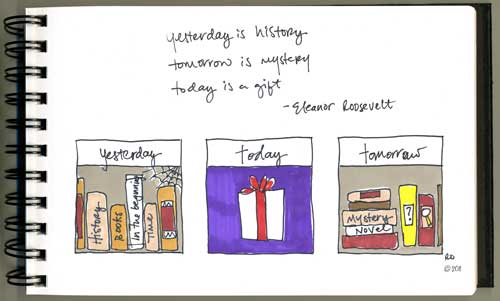 yesterday is history
tomorrow is mystery
today is a gift
-Eleanor Roosevelt
yesterday
today
tomorrow
History
Books
in the beginning
Time
Mystery
Novel
?
RD
©2011